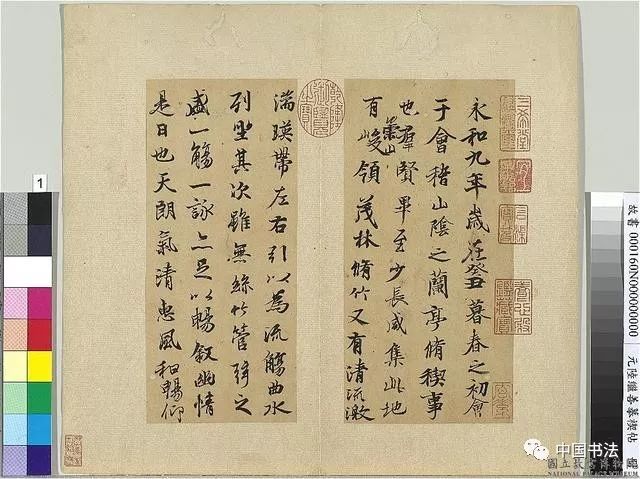 永和九年歲在癸丑暮春之初會
于會稽山陰之蘭亭脩稧事
也羣賢畢至少長咸集此地
有崇山峻領茂林脩竹又有清流激
湍暎帶左右引以為流觴曲水
列坐其次雖無絲竹管弦之
盛一觴一詠亦足以暢敘幽情
是日也天朗氣清惠風和暢仰
乾隆御覽之寶
三希堂精鑑璽
宜子孫
1
故書 000160N000000000 元陸繼善摹禊帖
中国书法
國立故宮博物院
NATIONAL PALACE MUSEUM